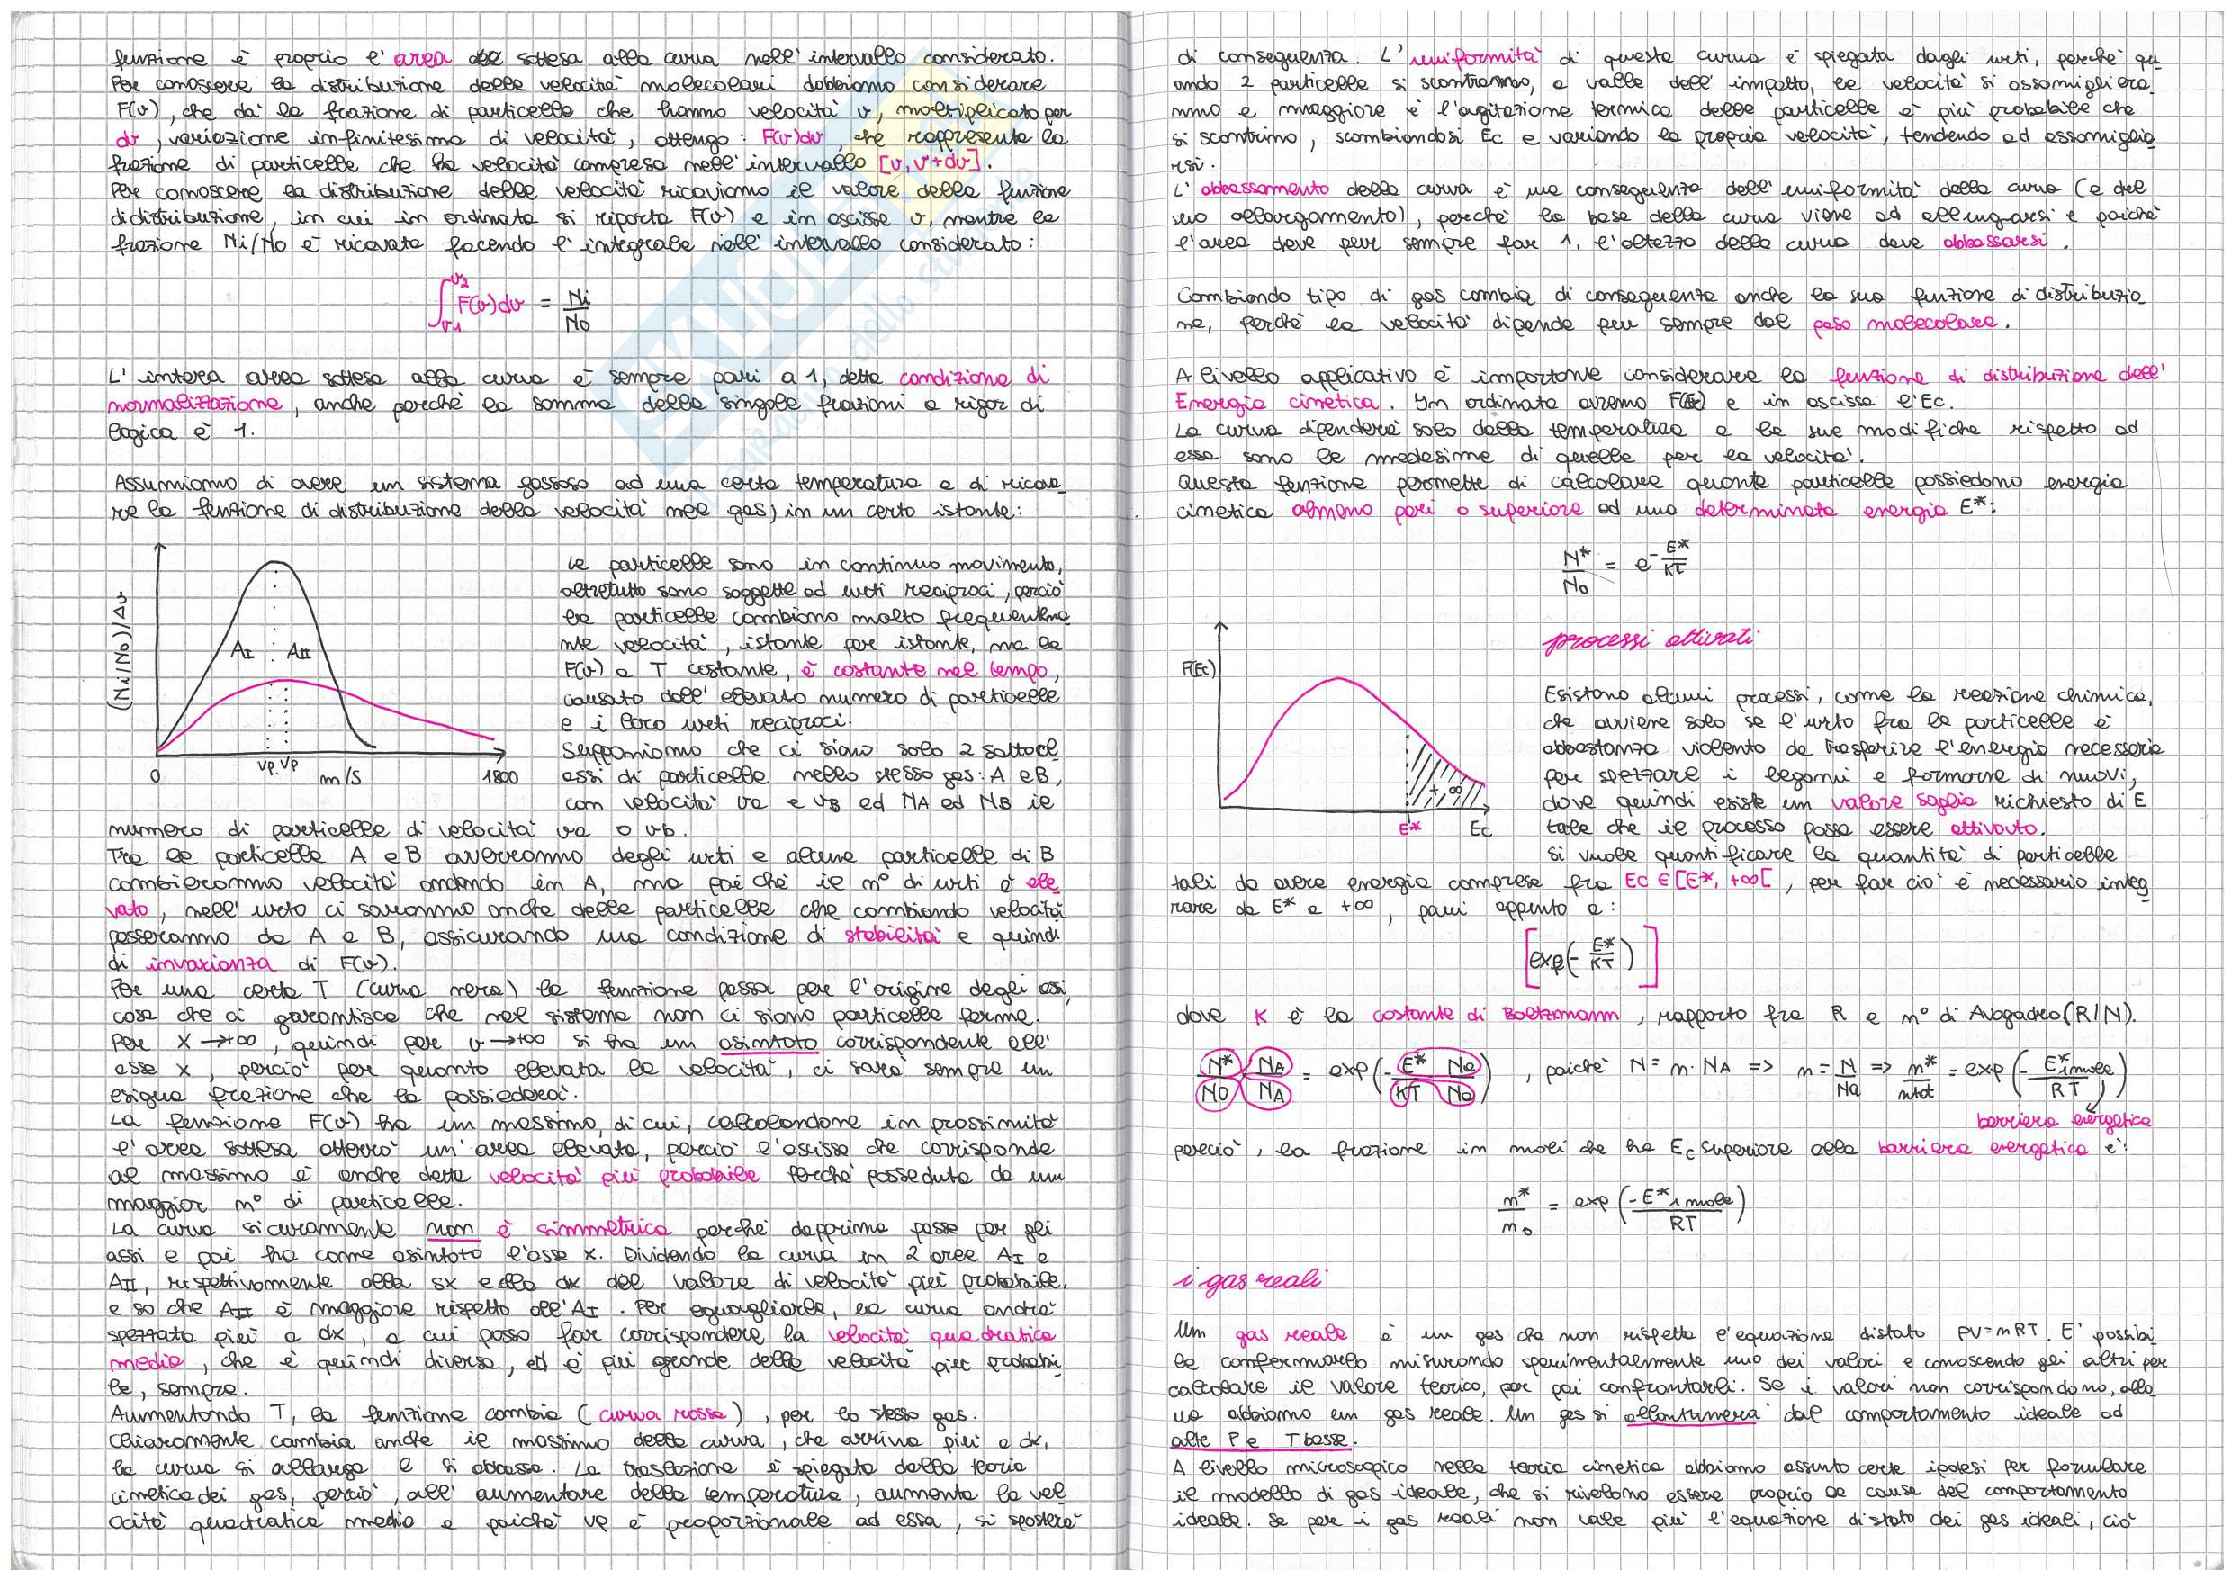 funzione è proprio l'area sottesa alla curva nell'intervallo considerato.
Per conoscere la distribuzione delle velocità molecolari dobbiamo considerare
F(v), che dà la frazione di particelle che hanno velocità v, moltiplicato per
dv, variazione infinitesima di velocità, ottengo: F(v)dv, che rappresenta la
frazione di particelle che ha velocità compresa nell'intervallo [v, v+dv].
Per conoscere la distribuzione delle velocità ricaviamo il valore della funzione
di distribuzione, in cui in ordinata si riporta F(v) e in ascisse v, mentre la
frazione Ni/No è ricavata facendo l'integrale nell'intervallo considerato:
∫v1 v2 F(v)dv = Ni/No
L'intera area sottesa alla curva è sempre pari a 1, detta condizione di
normalizzazione, anche perché la somma delle singole frazioni a rigor di
logica è 1.
Assumiamo di avere un sistema gassoso ad una certa temperatura e di ricava
re la funzione di distribuzione della velocità nel gas, in un certo istante:
(Ni/No)/Δv
AI AII
0 vp vp m/s 1800
Le particelle sono in continuo movimento,
oltretutto sono soggette ad urti reciproci, perciò
le particelle cambiano molto frequenteme
nte velocità, istante per istante, ma la
F(v) a T costante, è costante nel tempo,
causato dall'elevato numero di particelle
e i loro urti reciproci.
Supponiamo che ci siano solo 2 sottocl
assi di particelle nello stesso gas: A e B,
con velocità va e vB ed NA ed NB il
numero di particelle di velocità va o vb.
Tra le particelle A e B avverranno degli urti e alcune particelle di B
cambieranno velocità andando in A, ma poiché il n° di urti è ele
vato, nell'urto ci saranno anche delle particelle che cambiando velocità
passeranno da A a B, assicurando una condizione di stabilità e quindi
di invarianza di F(v).
Per una certa T (curva nera) la funzione passa per l'origine degli assi,
cosa che ci garantisce che nel sistema non ci siano particelle ferme.
Per x→+∞, quindi per v→+∞ si ha un asintoto corrispondente all'
asse x, perciò per quanto elevata la velocità, ci sarà sempre un
esigua frazione che la possiederà.
La funzione F(v) ha un massimo, di cui, calcolandone in prossimità
l'area sottesa otterrò un'area elevata, perciò l'ascissa che corrisponde
al massimo è anche detta velocità più probabile perché posseduta da un
maggior n° di particelle.
La curva sicuramente non è simmetrica perché dapprima passa per gli
assi e poi ha come asintoto l'asse x. Dividendo la curva in 2 aree AI e
AII, rispettivamente alla sx e alla dx del valore di velocità più probabile,
e so che AII è maggiore rispetto all'AI. Per eguagliarle, la curva andrà
spezzata più a dx, a cui posso far corrispondere la velocità quadratica
media, che è quindi diversa, ed è più grande della velocità più probabi
le, sempre.
Aumentando T, la funzione cambia (curva rossa), per lo stesso gas.
Chiaramente cambia anche il massimo della curva, che arriva più a dx,
la curva si allarga e si abbassa. La traslazione è spiegata dalla teoria
cinetica dei gas, perciò, all'aumentare della temperatura, aumenta la vel
ocità quadratica media e poiché vp è proporzionale ad essa, si sposterà
di conseguenza. L'uniformità di questa curva è spiegata dagli urti, perché qu
ando 2 particelle si scontrano, a valle dell'impatto, le velocità si assomigliera
nno e maggiore è l'agitazione termica delle particelle è più probabile che
si scontrino, scambiandosi Ec e variando la propria velocità, tendendo ad assomiglia
rsi.
L'abbassamento della curva è una conseguenza dell'uniformità della curva (e del
suo allargamento), perché la base della curva viene ad allungarsi e poiché
l'area deve pur sempre far 1, l'altezza della curva deve abbassarsi.
Cambiando tipo di gas cambia di conseguenza anche la sua funzione di distribuzio
ne, perché la velocità dipende pur sempre dal peso molecolare.
A livello applicativo è importante considerare la funzione di distribuzione dell'
Energia cinetica. In ordinata avremo F(Ec) e in ascissa l'Ec.
La curva dipenderà solo dalla temperatura e le sue modifiche rispetto ad
essa sono le medesime di quelle per la velocità.
Questa funzione permette di calcolare quante particelle possiedono energia
cinetica almeno pari o superiore ad una determinata energia E*:
N*/No = e^-E*/KT
processi attivati
F(Ec)
+∞
E* Ec
Esistono alcuni processi, come la reazione chimica,
che avviene solo se l'urto fra le particelle è
abbastanza violento da trasferire l'energia necessaria
per spezzare i legami e formarne di nuovi,
dove quindi esiste un valore soglia richiesto di E
tale che il processo possa essere attivato.
Si vuole quantificare la quantità di particelle
tali da avere energia compresa fra Ec ∈ [E*, +∞[, per far ciò è necessario integ
rare da E* a +∞, pari appunto a:
[exp(-E*/KT)]
dove K è la costante di Boltzmann, rapporto fra R e n° di Avogadro (R/N).
N*/No NA/NA = exp(-E*/KT Na/Na), poiché N = n·NA => n = N/Na => n*/ntot = exp(-E*1mole/RT)
barriera energetica
perciò, la frazione in moli che ha Ec superiore alla barriera energetica è:
n*/no = exp(-E*1mole/RT)
i gas reali
Un gas reale è un gas che non rispetta l'equazione distato PV=nRT. E' possibi
le confermarlo misurando sperimentalmente uno dei valori e conoscendo gli altri per
calcolare il valore teorico, per poi confrontarli. Se i valori non corrispondono, allo
ra abbiamo un gas reale. Un gas si allontanera dal comportamento ideale ad
alte P e T basse.
A livello microscopico nella teoria cinetica abbiamo assunto certe ipotesi per formulare
il modello di gas ideale, che si rivelano essere proprio la causa del comportamento
ideale. Se per i gas reali non vale più l'equazione distato dei gas ideali, ciò